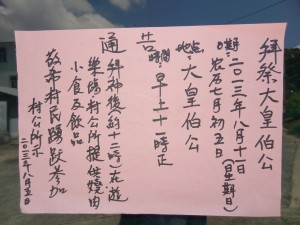 拜祭大皇伯公
日期:二〇一三年八月十日(星期日)
农历七月初五日
地点:大皇伯公
時間:早上十一時正
通告
拜神後(約十二時)在遊
樂場村公所提供燒肉
小食及飲品
敬希村民踴躍參加
村公所示
二〇一三年八月五日